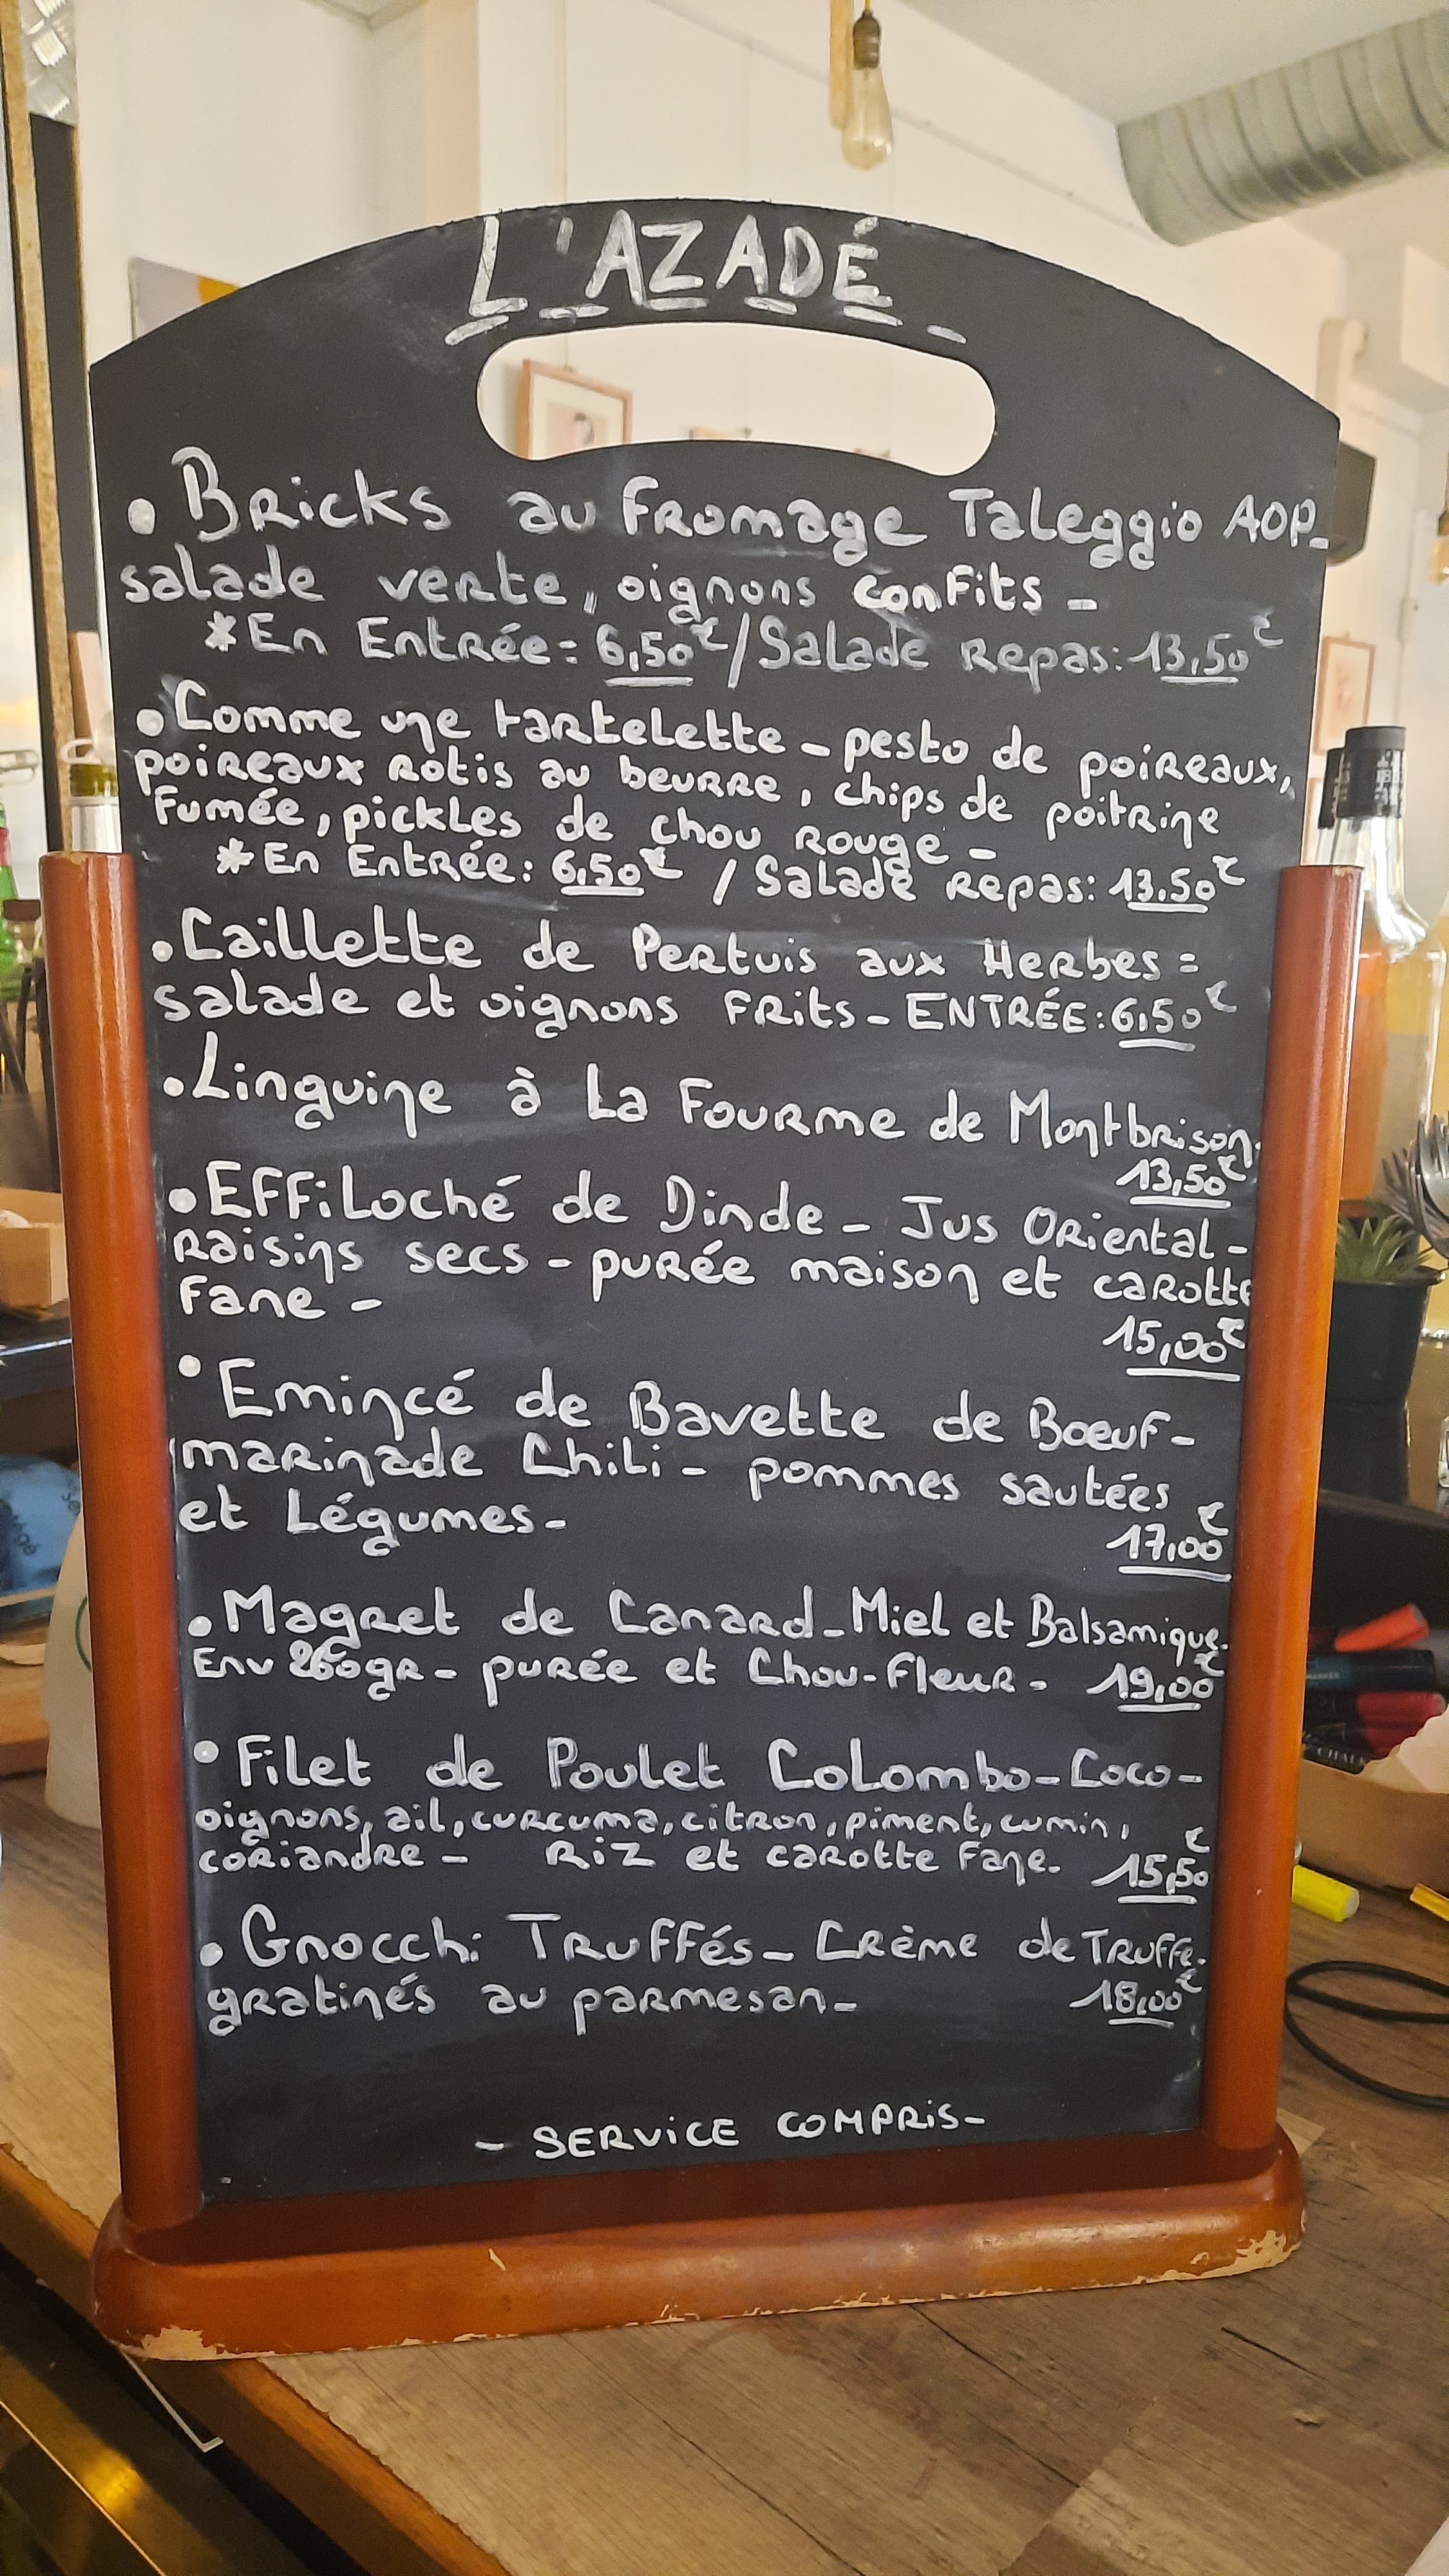 L'AZADÉ
• Bricks au fromage Taleggio AOP_
salade verte, oignons confits -
*En Entrée: 6,50€/Salade Repas: 13,50€
• Comme une tartelette - pesto de poireaux,
poireaux rotis au beurre, chips de poitrine
fumée, pickles de chou rouge -
*En Entrée: 6,50€ / Salade Repas: 13.50€
• Caillette de Pertuis aux Herbes =
salade et oignons frits - ENTRÉE: 6,50€
• Linguine à la Fourme de Montbrison.
13,50€
• Effiloché de Dinde - Jus Oriental -
Raisins secs - purée maison et carotte
fane -
15,00€
• Emincé de Bavette de Boeuf -
marinade Chili - pommes sautées
et Légumes -
17,00€
• Magret de Canard - Miel et Balsamique.
Env 260gr - purée et Chou-fleur - 19,00€
• Filet de Poulet Colombo - Coco -
oignons, ail, curcuma, citron, piment, cumin,
coriandre - Riz et carotte fane. 15,50€
• Gnocchi Truffés - Crème de Truffe.
gratinés au parmesan - 18,00€
- SERVICE COMPRIS -
MARKER
CHALK